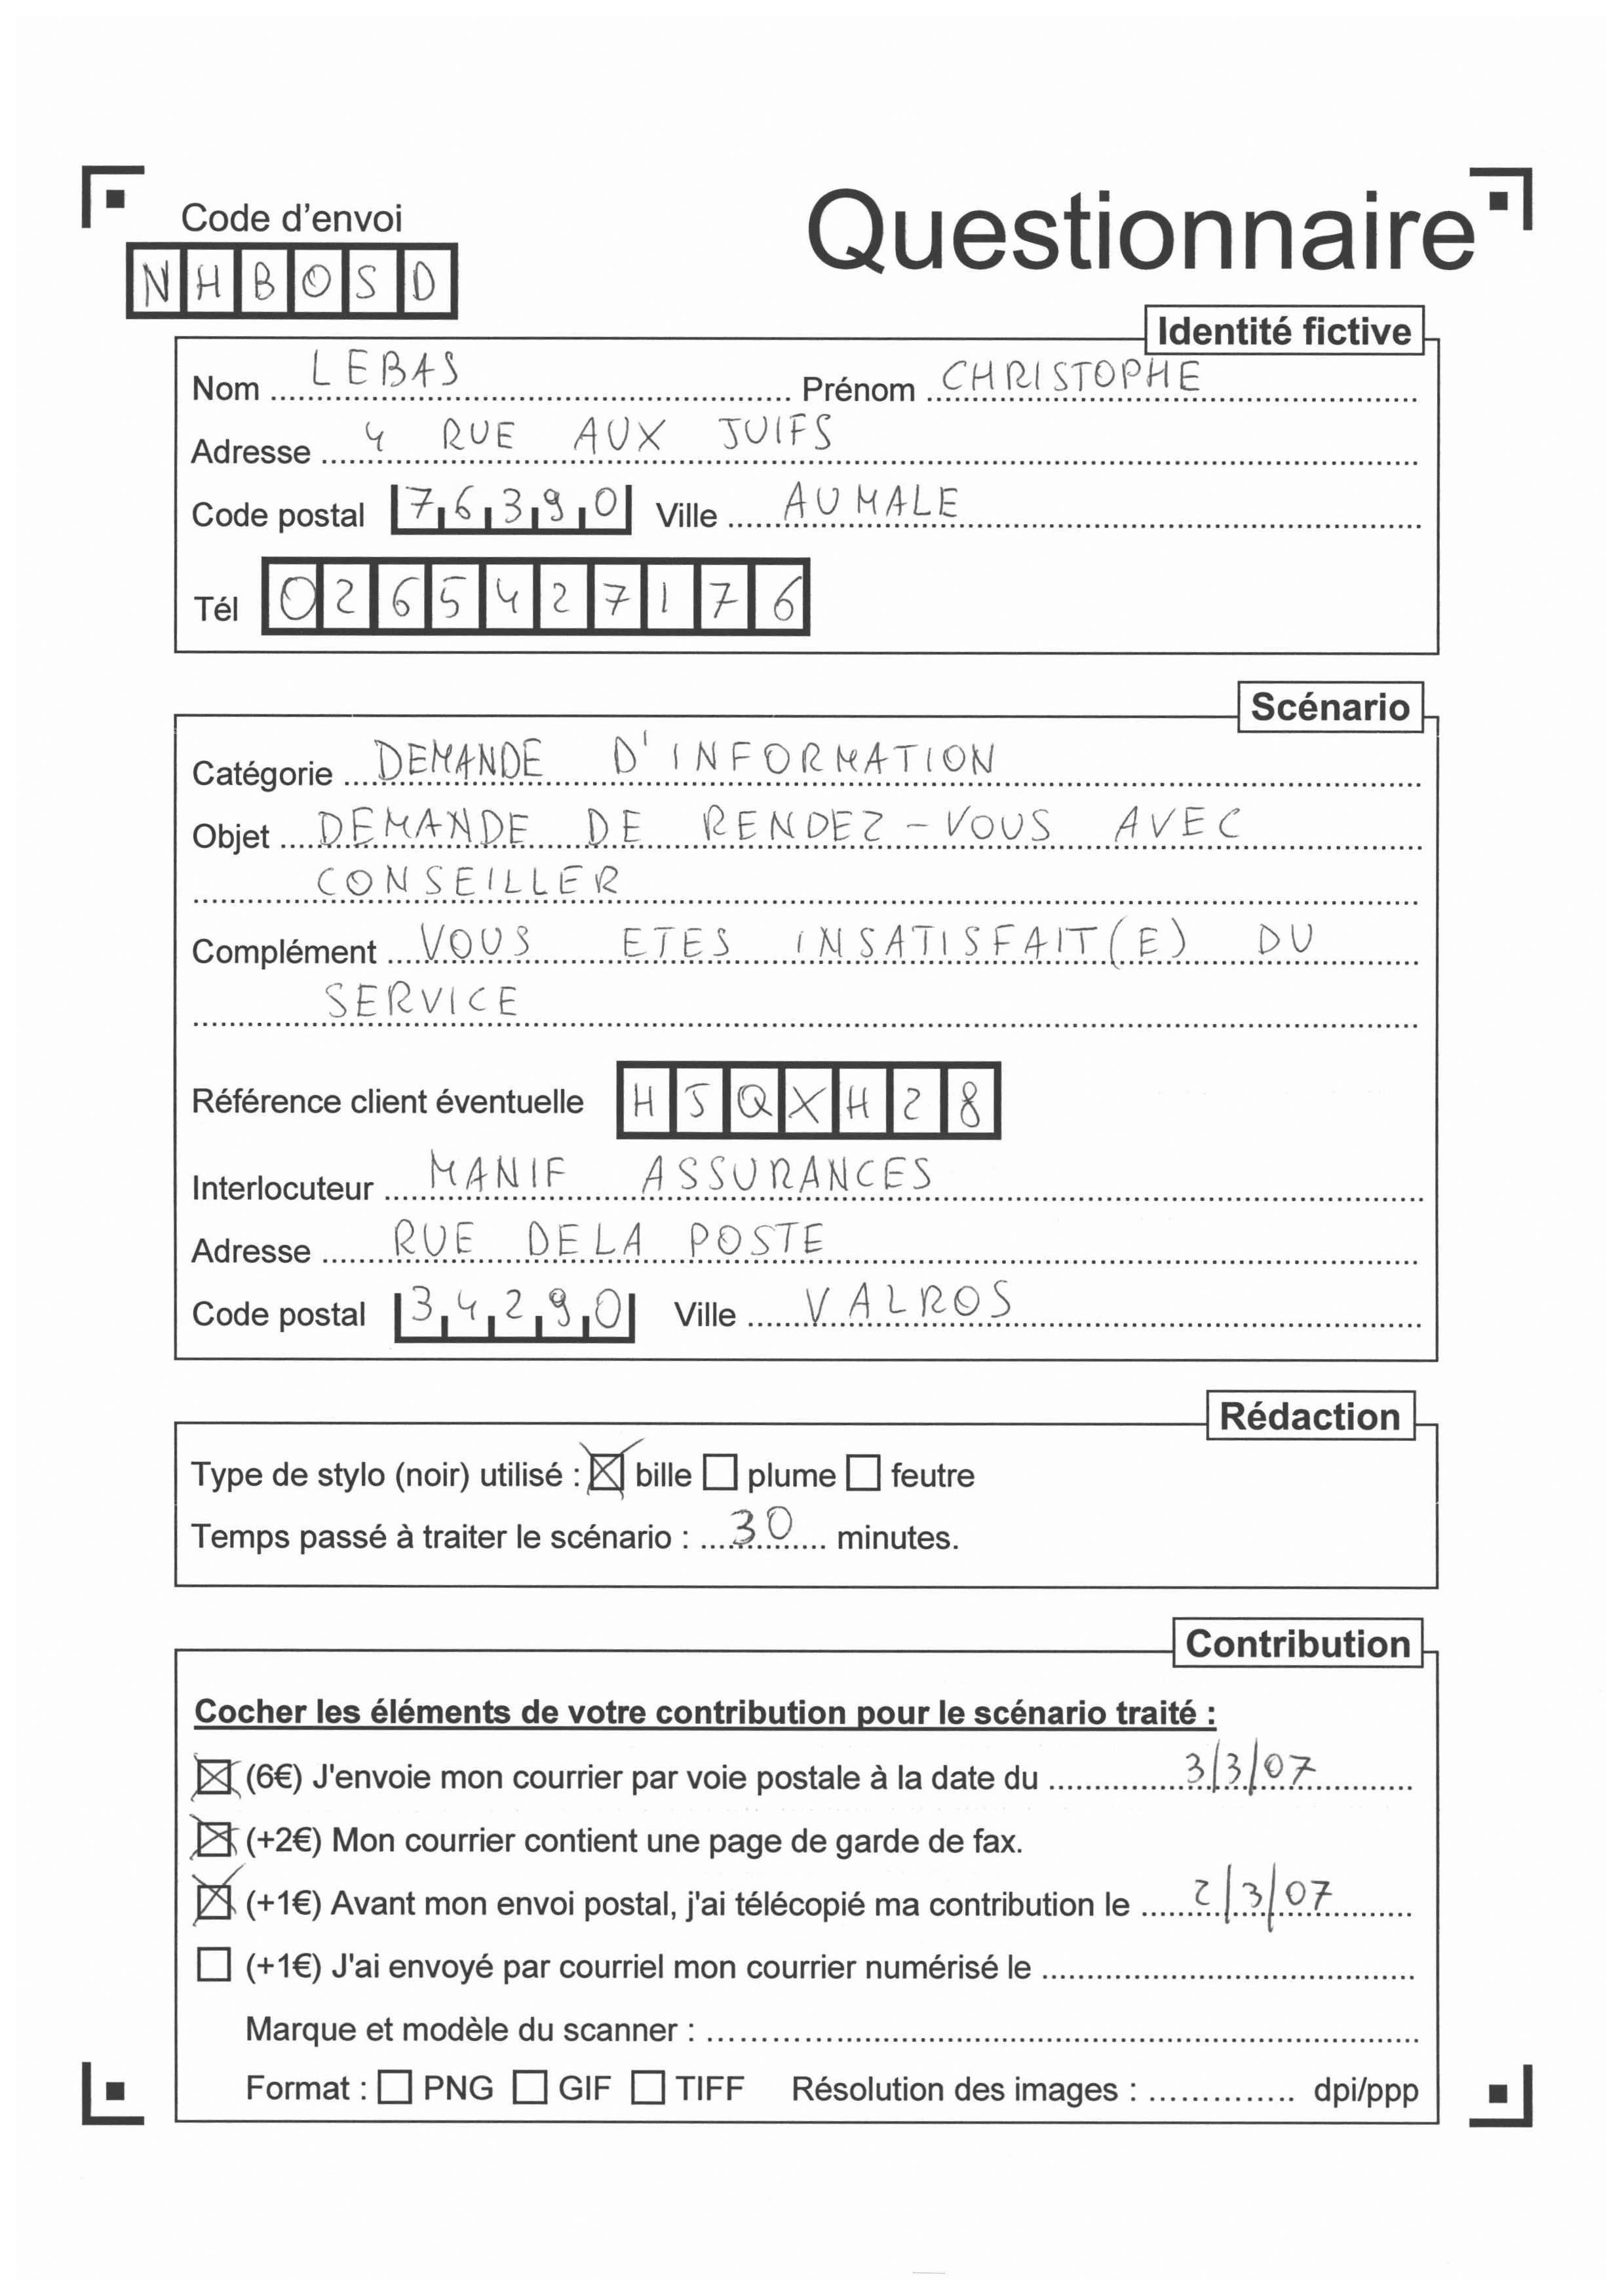 Code d'envoi
Questionnaire
NHBOSD
Identité fictive
Nom LEBAS Prénom CHRISTOPHE
Adresse 4 RUE AUX JUIFS
Code postal 76390 Ville AUMALE
Tél 0265427176
Scénario
Catégorie DEMANDE D'INFORMATION
Objet DEMANDE DE RENDEZ-VOUS AVEC
CONSEILLER
Complément VOUS ETES INSATISFAIT(E) DU
SERVICE
Référence client éventuelle HJQXH28
Interlocuteur MANIF ASSURANCES
Adresse RUE DE LA POSTE
Code postal 34290 Ville VALROS
Rédaction
Type de stylo (noir) utilisé : bille plume feutre
Temps passé à traiter le scénario : 30 minutes.
Contribution
Cocher les éléments de votre contribution pour le scénario traité :
(6€) J'envoie mon courrier par voie postale à la date du 3/3/07
(+2€) Mon courrier contient une page de garde de fax.
(+1€) Avant mon envoi postal, j'ai télécopié ma contribution le 2/3/07
(+1€) J'ai envoyé par courriel mon courrier numérisé le
Marque et modèle du scanner :
Format : PNG GIF TIFF Résolution des images : dpi/ppp